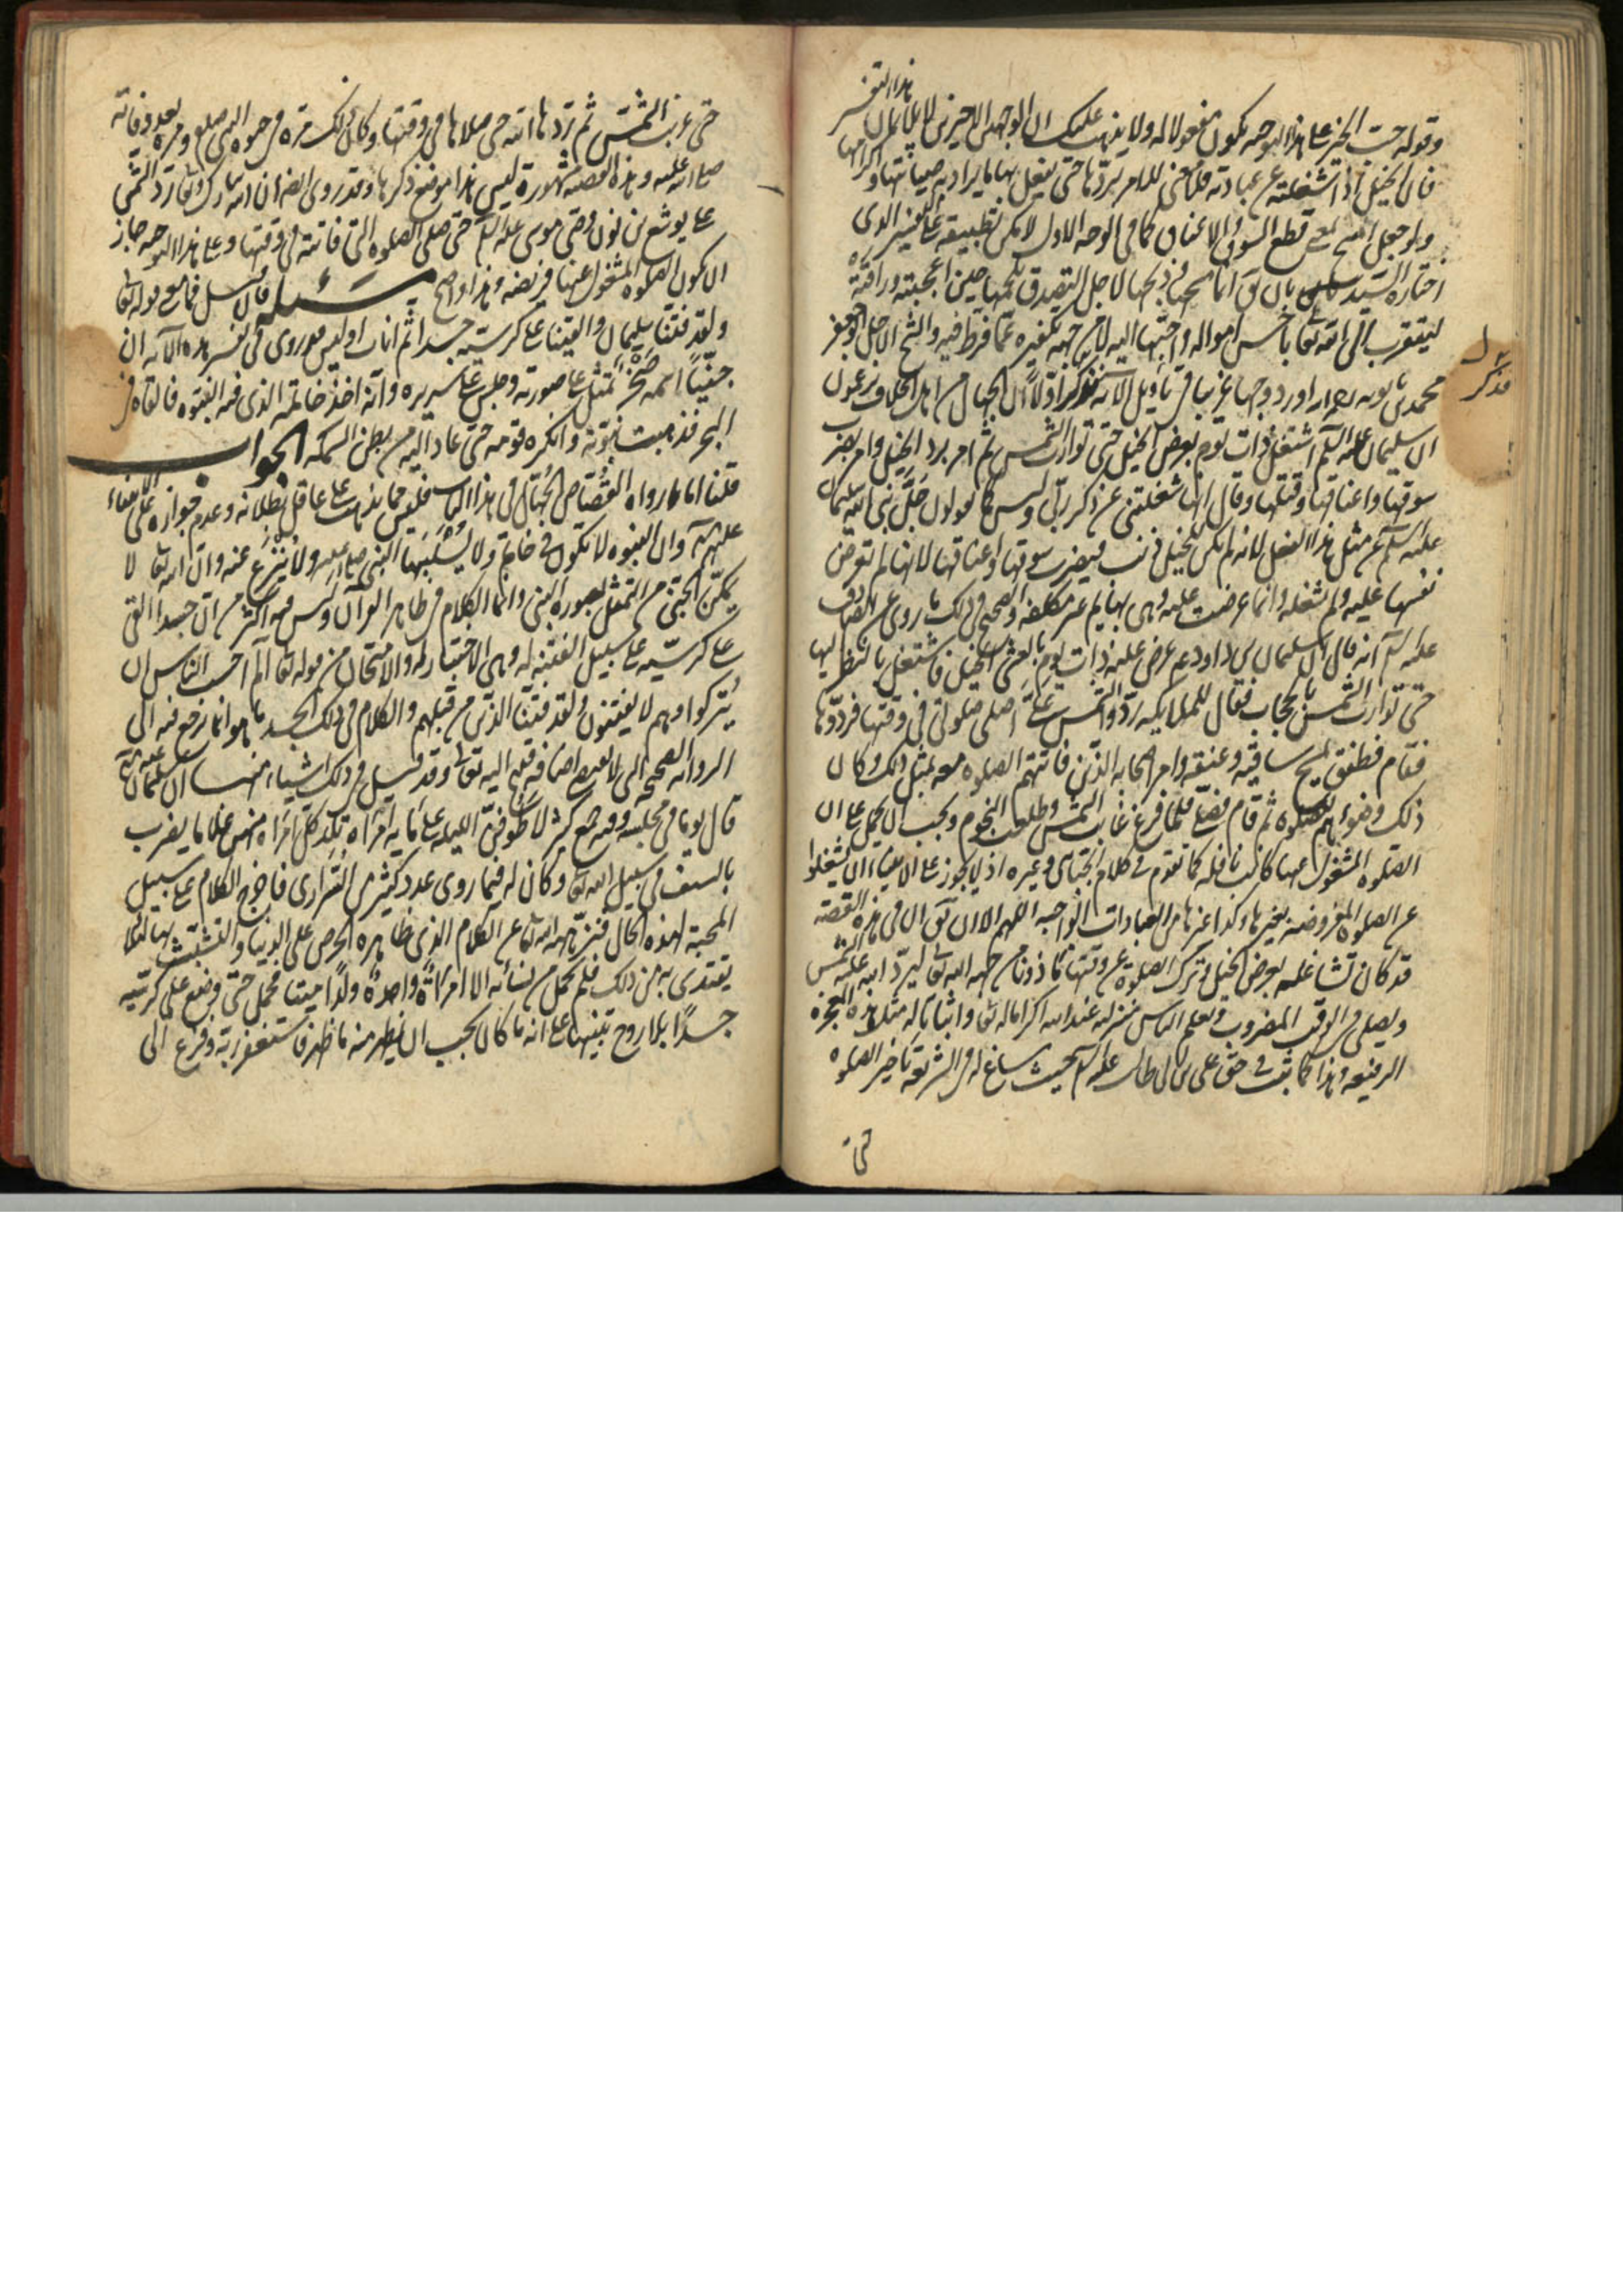 هذا التفسير
وقوله حب الخير على هذا التوجيه يكون مفعولا له ولا يذهب عليك ان الوجهين الاخيرين لا يلائمان
فان الخيل اذا شغلته عن عبادته فلا معنى للامر بردها حتى يفعل بها ما يراد به صيانتها واكرامها
ولو جعل المسح بمعنى قطع السوق والاعناق كما في الوجه الاول لا يمكن تطبيقه على التفسير الذي
اختاره السيد بان يق انما مسحها ذبحها لاجل التصدق بلحمها حين اعجبته وراقته
ليتقرب الى الله تعالى باحسن امواله واحبها اليه لا من جهة تكفيره عما فرط فيه والشيخ الاجل ابو جعفر
محمد بن بابويه رحمه الله اورد وجها غريبا في تأويل الآية فذكر اولا ان الجهال من اهل الخلاف يزعمون
ان سليمان عليه السلم اشتغل ذات يوم بعرض الخيل حتى توارت الشمس ثم امر برد الخيل وامر بضرب
سوقها واعناقها وقتلها وقال انها شغلتني عن ذكر ربي وليس كما يقولون جل نبي الله سليمان
عليه السلم عن مثل هذا الفعل لانه لم يكن للخيل ذنب فيضرب سوقها واعناقها لانها لم تعرض
نفسها عليه ولم تشغله وانما عرضت عليه وهي بهايم غير مكلفه والصحيح في ذلك ما روي عن الصادق
عليه السلم انه قال ان سليمان بن داود ع عرض عليه ذات يوم بالعشي الخيل فاشتغل بالنظر اليها
حتى توارت الشمس بالحجاب فقال للملايكه ردوا الشمس علي اصلي صلوتي في وقتها فردوها
فقام فطفق مسح ساقيه وعنقه وامر اصحابه الذين فاتتهم الصلوة معه بمثل ذلك وكان
ذلك وضوءهم للصلوة ثم قام فصلى فلما فرغ غابت الشمس وطلعت النجوم ويجب ان يحمل على ان
الصلوة المشغول عنها كانت نافله كما تقدم في كلام الجبائي وغيره اذ لا يجوز على الانبياء ان يشغلوا
عن الصلوة المفروضه بغيرها وكذا غيرها من العبادات الواجبه اللهم الا ان يق ان في هذه القصة
قد كان تشاغله بعرض الخيل وترك الصلوة عن وقتها مأذونا من جهة الله تعالى ليرد الله عليه الشمس
ويصلي في الوقت المضروب وليعلم الناس منزلته عند الله اكراما له تعالى واثباتا له مثل هذه المعجزه
الرفيعه وهذا كما ثبت في حق علي بن ابي طالب عليه السلم بحيث ساغ له في الشريعة تأخير الصلوة
حتى
فذكر
حتى غربت الشمس ثم ردها الله حتى صلاها في وقتها وكان ذلك مرة في حيوة النبي صلعم ومرة بعد وفاته
صلى الله عليه وهذه القصة مشهورة ليس هذا موضع ذكرها وقد روي ايضا ان الله تبارك وتعالى رد الشمس
على يوشع بن نون وصي موسى عليه السلم حتى صلى الصلوة التي فاتته في وقتها وعلى هذا التوجيه جاز
ان يكون الصلوة المشغول عنها فريضه وهذا واضح مسئله فان قيل فما معنى قوله تعالى
ولقد فتنا سليمان والقينا على كرسيه جسدا ثم اناب اوليس قد روي في تفسير هذه الآية ان
جنيا اسمه صخر تمثل على صورته وجلس على سريره وانه اخذ خاتمه الذي فيه النبوة فالقاه في
البحر فذهبت نبوته وانكره قومه حتى عاد اليه من بطن السمكه الجواب
قلنا اما ما رواه القصاص الجهال في هذا الباب فليس مما يذهب على عاقل بطلانه وعدم جوازه على الانبياء
عليهم السلم وان النبوه لا تكون في خاتم ولا يسلبها النبي صلى الله عليه ولا ينزع عنه وان الله تعالى لا
يمكن الجني من التمثل بصورة النبي وانما الكلام في ظاهر القرآن وليس فيه اكثر من ان جسدا القي
على كرسيه على سبيل الفتنة له وهي الاختبار والامتحان من قوله تعالى الم احسب الناس ان
يتركوا وهم لا يفتنون ولقد فتنا الذين من قبلهم والكلام في ذلك الجسد ما هو انما نرجع فيه الى
الروايه الصحيحه التي لا تقتضي اضافة قبيح اليه تعالى وقد قيل في ذلك اشياء منها ان سليمان عليه السلم
قال يوما في مجلسه وفيه جمع كثير لاطوفن الليله على مايه امرأه تلد كل امرأه منهن غلاما يضرب
بالسيف في سبيل الله تعالى وكان له فيما روي عدد كثير من السراري فاخرج الكلام على سبيل
المحبة لهذه الحال فنزهه الله تعالى عن الكلام الذي ظاهره الحرص على الدنيا والتشبث بها لئلا
يقتدى به في ذلك فلم تحمل من نسائه الا امرأة واحدة ولدا ميتا فحمل حتى وضع على كرسيه
جسدا بلا روح تنبيها على انه ما كان يجب ان يظهر منه ما ظهر فاستغفر ربه وفزع الى